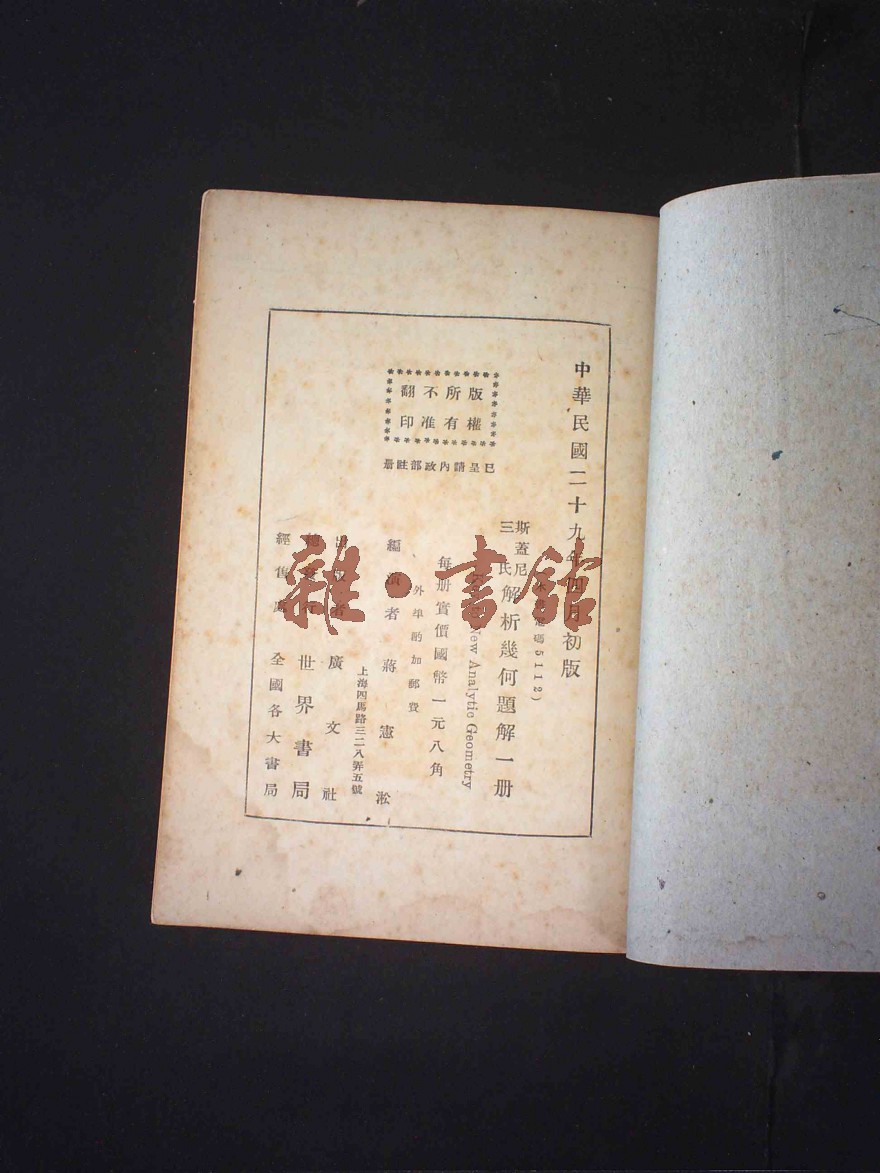 中華民國二十九年四月初版
電碼5112)
斯蓋尼
三氏
解析幾何題解一册
New Analytic Geometry
每册實價國幣一元八角
外埠酌加郵費
版權
所有
不准
翻印
已呈請內政部註册
編演者 蔣憲淞
上海四馬路三二八弄五號
出版者 廣文社
世界書局
經售處 全國各大書局
雜·書館